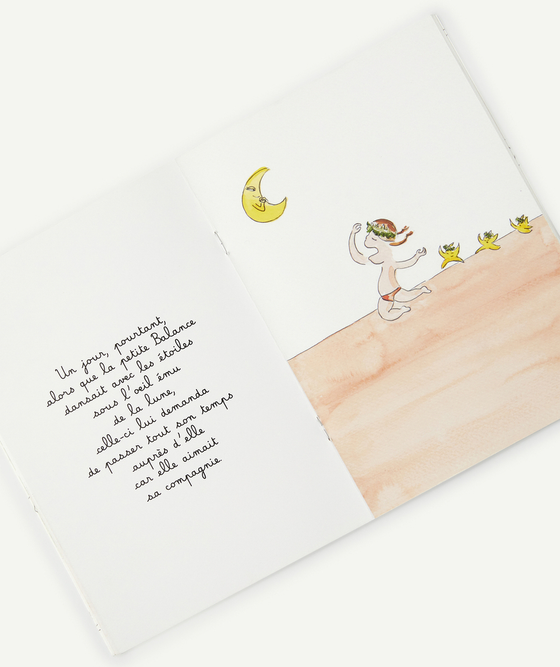 Un jour, pourtant,
alors que la petite Balance
dansait avec les étoiles
sous l'oeil ému
de la lune,
celle-ci lui demanda
de passer tout son temps
auprès d'elle
car elle aimait
sa compagnie